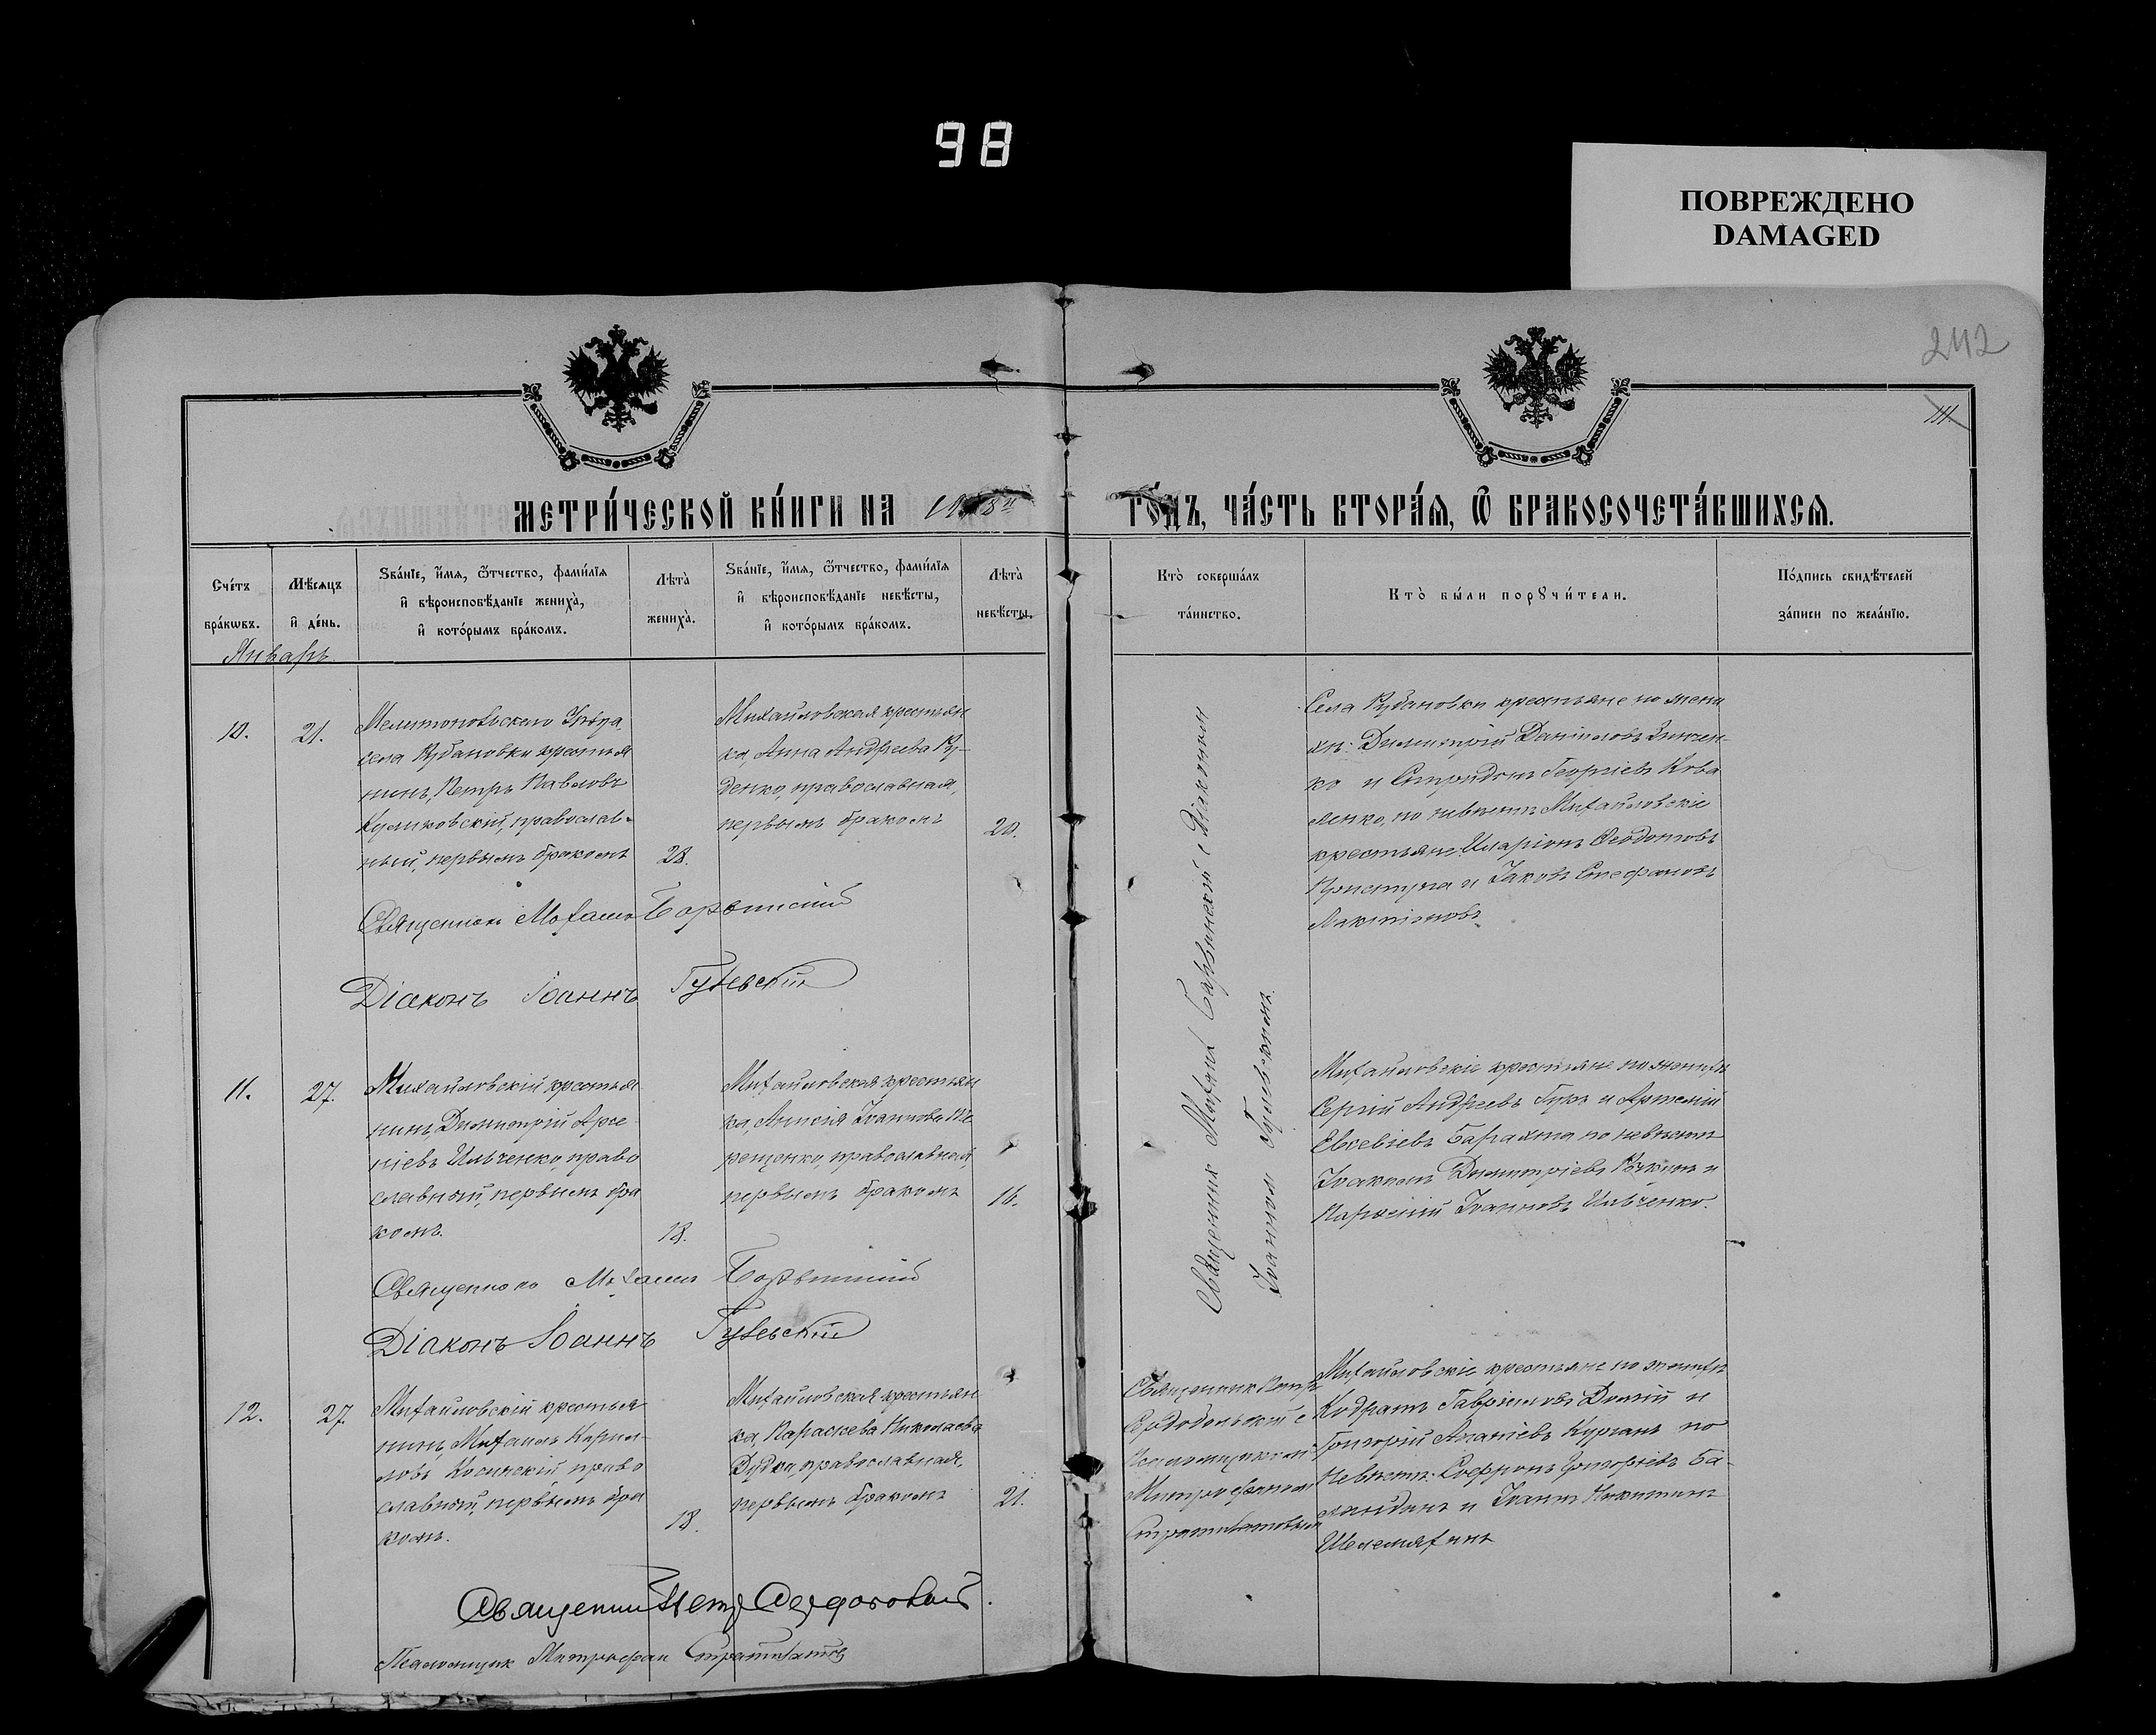 98
ПОВРЕЖДЕНО
DAMAGED
242
111
МЕТРИ́ЧЕСКОЙ КНИ́ГИ НА
ГО́ДЪ, ЧА́СТЬ ВТОРА́Ѧ, Ѿ БРАКОСОЧЕТА́ВШИХСѦ.
Сче́тъ
бра́кѡвъ.
Мѣ́сѧцъ
и҆ де́нь.
Ѕва́нїе, и҆́мѧ, ѻ҆́тчество, фами́лїѧ
и҆ вѣроисповѣ́данїе жениха̀,
и҆ кото́рымъ бра́комъ.
Лѣ́та̀
жениха̀.
Ѕва́нїе, и҆́мѧ, ѻ҆́тчество, фами́лїѧ
и҆ вѣроисповѣ́данїе невѣ́сты,
и҆ кото́рымъ бра́комъ.
Лѣ́та̀
невѣ́сты.
Кто̀ соверша́лъ
та́инство.
Кто̀ бы́ли порꙋчи́тели.
По́дпись свидѣ́телей
за́писи по жела́нїю.
Январь
10.
21.
Мелитопольскаго Уѣзда,
села Рубановки крестья
нинъ, Петръ Павловъ
Куликовскій, православ-
ный, первымъ бракомъ
28.
Михайловская крестьян
ка, Анна Андреева Ру-
денко, православная,
первымъ бракомъ
20.
Села Рубановки крестьяне по жени
хѣ: Димитрій Даніиловъ Зинчен-
ко и Спиридонъ Георгіевъ Кова
ленко, по невѣстѣ Михайловскіе
крестьяне: Иларіонъ Ѳеодотовъ
и Іаковъ Стефановъ
Священникъ
Діаконъ Іоаннъ Гулевскій
Священник
Іоанном Гулевским
11.
27.
Михайловскій крестья
нинъ, Димитрій Арсе
ніевъ Ильченко, право
славный, первымъ бра
комъ.
18.
Михайловская крестьян
ка, Анисія Іоаннова Те
рещенко, православная,
первымъ бракомъ
16.
Михайловскіе крестьяне по женихѣ
Сергій Андреевъ Гукъ и Артемій
Евсевіевъ Барахта по невѣстѣ
Іоакимъ Димитріевъ и
Іоанновъ Ильченко.
Священникъ
Діаконъ Іоаннъ Гулевскій
12.
27.
Михайловскій крестья
нинъ, Михаилъ Кирил-
ловъ Косинскій, право
славный, первымъ бра
комъ.
18.
Михайловская крестьян
ка, Параскева Николаева
Дудка, православная,
первымъ бракомъ
21.
Священник Петр
с
Псаломщиком
Митрофаном
Михайловскіе крестьяне по женихѣ
Кодратъ Гавріиловъ и
Григорій Ананіевъ Курганъ по
невѣстѣ: Софронъ Григорьевъ Ба-
и Іоаннъ Никитинъ
Священник Петр
Псаломщик Митрофан